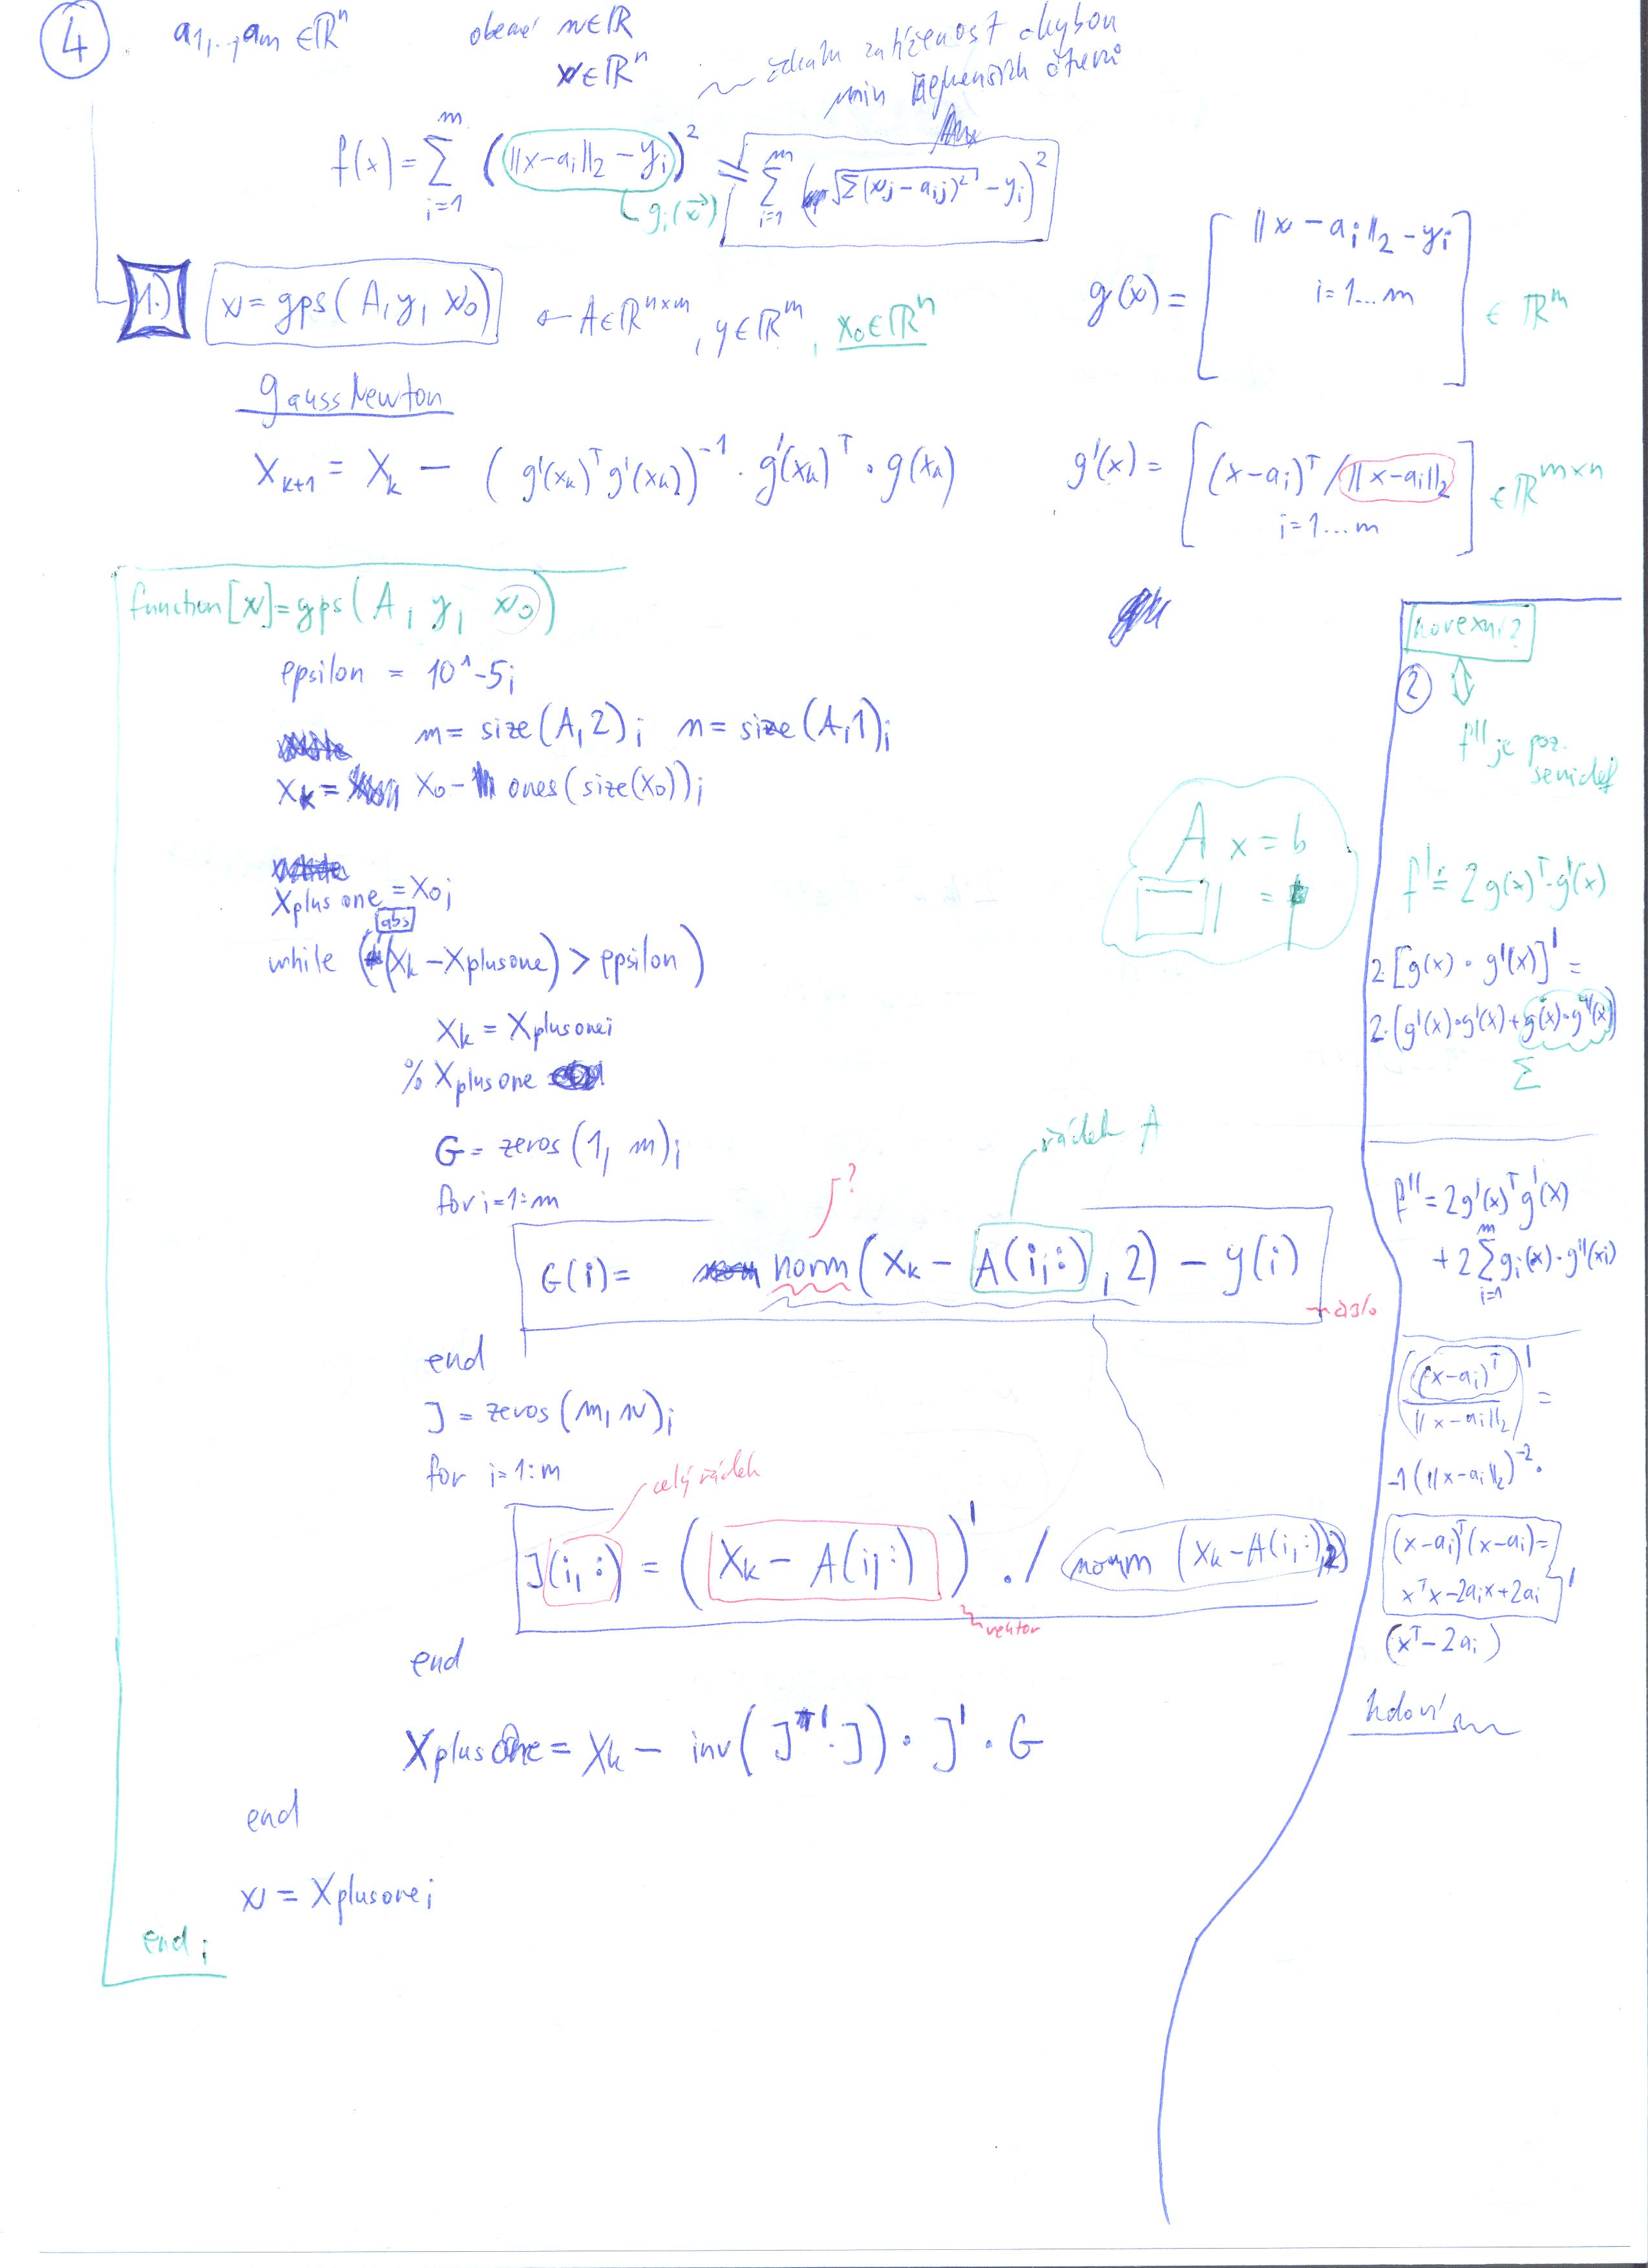 4. a1,..,am ∈ ℝⁿ obecně n∈ℝ
x∈ℝⁿ
zatíženost chybou
min čtverců
f(x) = Σ_{i=1}^{m} (‖x-ai‖₂ - yi)² = Σ_{i=1}^{m} (√Σ(xj - aij)² - yi)²
gi(x⃗)
1.) x = gps(A, y, x0) ← A∈ℝ^{n×m}, y∈ℝ^m, x0∈ℝⁿ
g(x) = [ ‖x - ai‖₂ - yi
i=1...m ] ∈ ℝ^m
gaussNewton
X_{k+1} = X_k - (g'(xk)ᵀ g'(xk))⁻¹ · g'(xk)ᵀ · g(xk)
g'(x) = [ (x-ai)ᵀ / ‖x-ai‖₂
i=1...m ] ∈ ℝ^{m×n}
function [x] = gps(A, y, x0)
epsilon = 10^-5;
m = size(A,2); n = size(A,1);
Xk = X0 - ones(size(X0));
Xplusone = X0;
abs
while ((Xk - Xplusone) > epsilon)
Xk = Xplusone;
% Xplusone
G = zeros(1, m);
for i=1:m
?
řádek A
G(i) = norm(Xk - A(i,:), 2) - y(i)
číslo
end
J = zeros(m, n);
for i=1:m
celý řádek
J(i,:) = (Xk - A(i,:))' ./ norm(Xk - A(i,:),2)
vektor
end
XplusOne = Xk - inv(J'·J) · J' · G
end
x = Xplusone;
end;
A x = b
=
2
f'' je poz.
semidef
f' = 2g(x)ᵀ·g'(x)
2·[g(x) · g'(x)]' =
2·(g'(x)·g'(x) + g(x)·g''(x))
Σ
f'' = 2g'(x)ᵀg'(x)
+ 2 Σ_{i=1}^{m} gi(x)·g''(xi)
((x-ai)ᵀ / ‖x-ai‖₂)' =
-1(‖x-ai‖₂)⁻²·
[(x-ai)ᵀ(x-ai) =
xᵀx-2aix+2ai]'
(xᵀ-2ai)